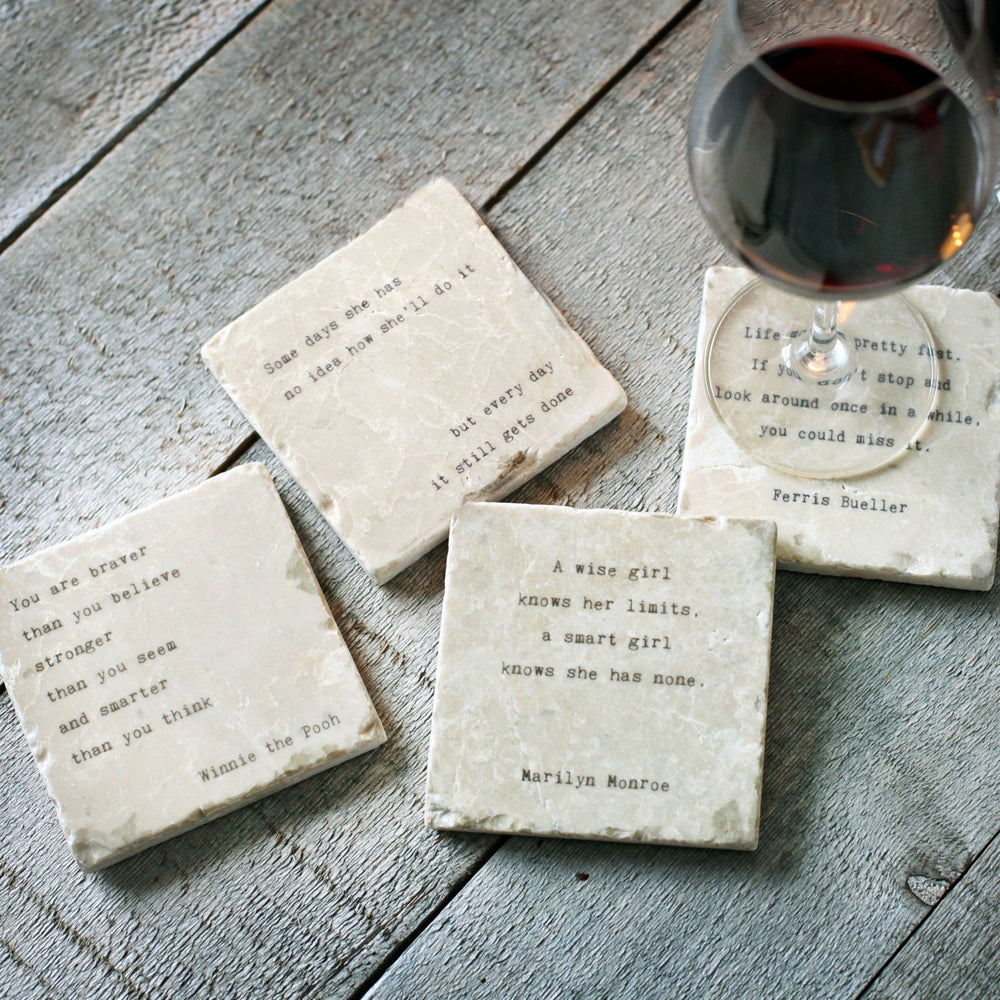 Some days she has
no idea how she'll do it
but every day
it still gets done
Life pretty fast.
If you don't stop and
look around once in a while,
you could miss it.
Ferris Bueller
You are braver
than you believe
stronger
than you seem
and smarter
than you think
Winnie the Pooh
A wise girl
knows her limits,
a smart girl
knows she has none.
Marilyn Monroe